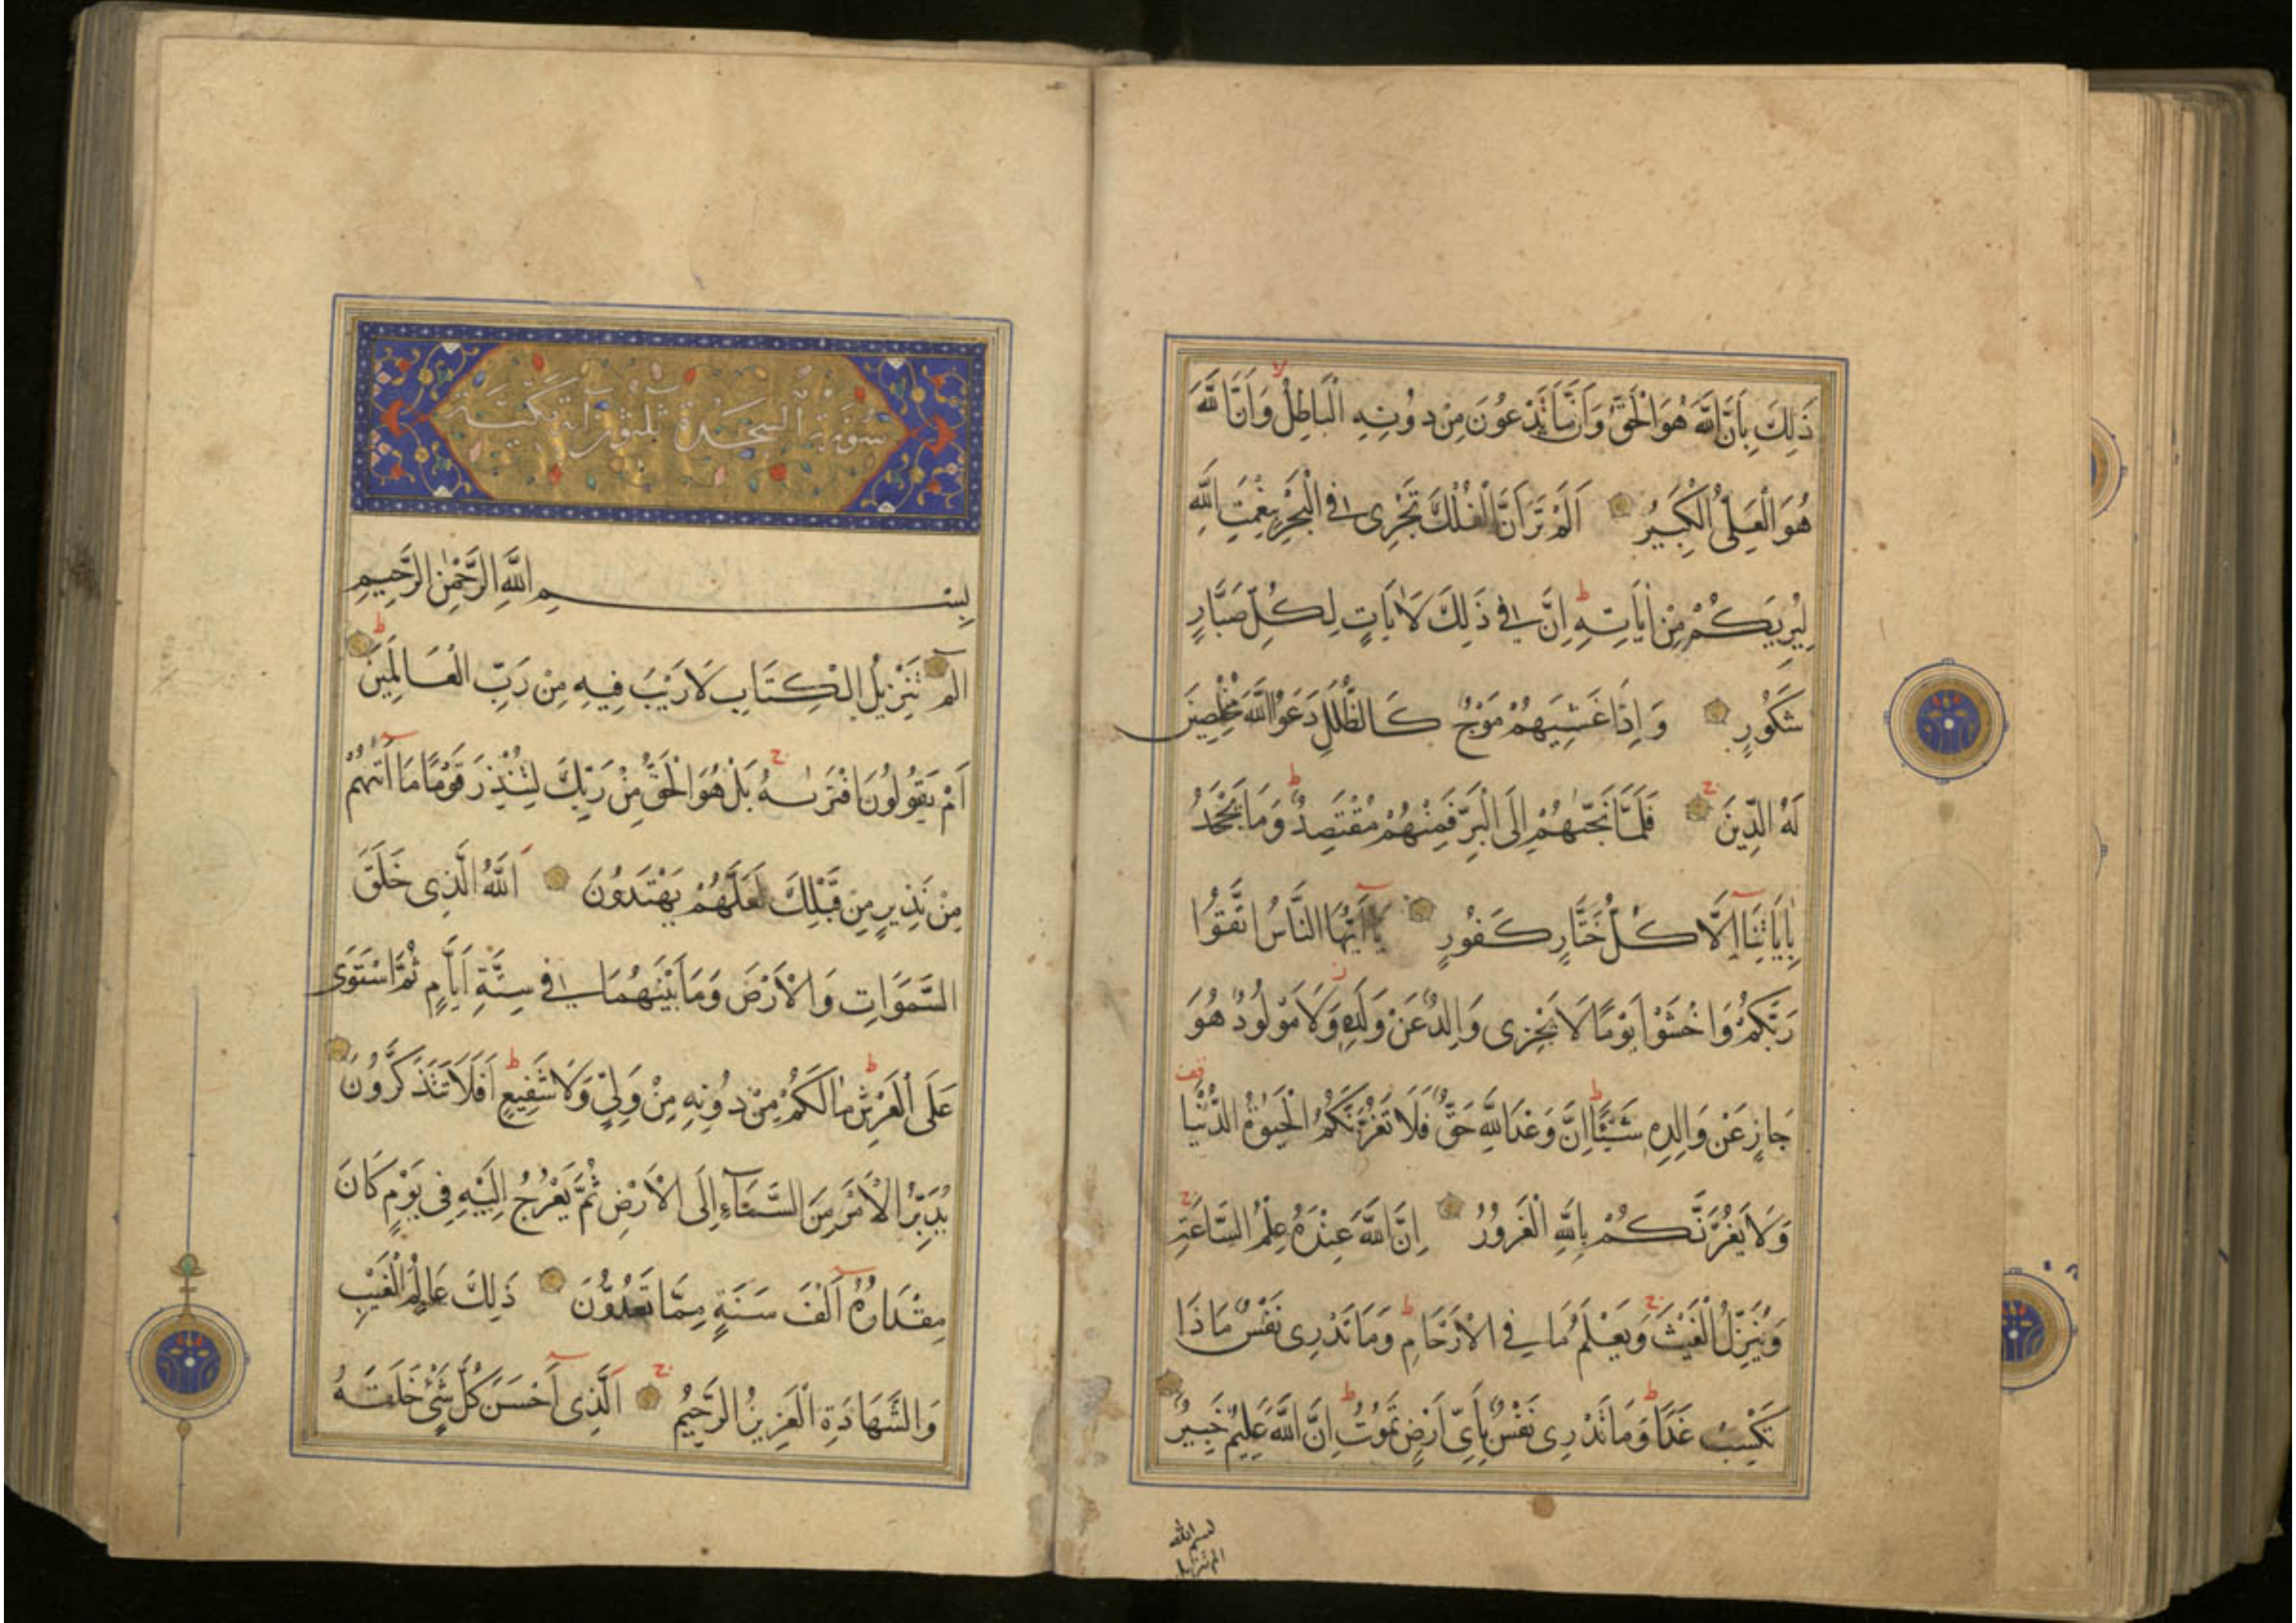 ذَلِكَ بِاَنَّ اللّٰهَ هُوَ الْحَقُّ وَاَنَّ مَا يَدْعُونَ مِنْ دُونِهِ الْبَاطِلُ وَاَنَّ اللّٰهَ
هُوَ الْعَلِىُّ الْكَبِيرُ اَلَمْ تَرَ اَنَّ الْفُلْكَ تَجْرِى فِى الْبَحْرِ بِنِعْمَتِ اللّٰهِ
لِيُرِيَكُمْ مِنْ اٰيَاتِهِ ط اِنَّ فِى ذَلِكَ لَاٰيَاتٍ لِكُلِّ صَبَّارٍ
شَكُورٍ وَاِذَا غَشِيَهُمْ مَوْجٌ كَالظُّلَلِ دَعَوُا اللّٰهَ مُخْلِصِينَ
لَهُ الدِّينَ ج فَلَمَّا نَجّٰىهُمْ اِلَى الْبَرِّ فَمِنْهُمْ مُقْتَصِدٌ ط وَمَا يَجْحَدُ
بِاٰيَاتِنَا اِلَّا كُلُّ خَتَّارٍ كَفُورٍ يَا اَيُّهَا النَّاسُ اتَّقُوا
رَبَّكُمْ وَاخْشَوْا يَوْمًا لَا يَجْزِى وَالِدٌ عَنْ وَلَدِهِ ز وَلَا مَوْلُودٌ هُوَ
جَازٍ عَنْ وَالِدِهِ شَيْئًا ط اِنَّ وَعْدَ اللّٰهِ حَقٌّ فَلَا تَغُرَّنَّكُمُ الْحَيٰوةُ الدُّنْيَا قف
وَلَا يَغُرَّنَّكُمْ بِاللّٰهِ الْغَرُورُ اِنَّ اللّٰهَ عِنْدَهُ عِلْمُ السَّاعَةِ ج
وَيُنَزِّلُ الْغَيْثَ ج وَيَعْلَمُ مَا فِى الْاَرْحَامِ ط وَمَا تَدْرِى نَفْسٌ مَاذَا
تَكْسِبُ غَدًا ط وَمَا تَدْرِى نَفْسٌ بِاَىِّ اَرْضٍ تَمُوتُ ط اِنَّ اللّٰهَ عَلِيمٌ خَبِيرٌ
بسم الله
الم تنزيل
سُورَةُ السَّجْدَةِ ثلثون آية مكية
بِسْمِ اللّٰهِ الرَّحْمٰنِ الرَّحِيمِ
الٓمٓ تَنْزِيلُ الْكِتَابِ لَا رَيْبَ فِيهِ مِنْ رَبِّ الْعَالَمِينَ ط
اَمْ يَقُولُونَ افْتَرٰىهُ ج بَلْ هُوَ الْحَقُّ مِنْ رَبِّكَ لِتُنْذِرَ قَوْمًا مَا اَتٰىهُمْ
مِنْ نَذِيرٍ مِنْ قَبْلِكَ لَعَلَّهُمْ يَهْتَدُونَ اَللّٰهُ الَّذِى خَلَقَ
السَّمَوَاتِ وَالْاَرْضَ وَمَا بَيْنَهُمَا فِى سِتَّةِ اَيَّامٍ ثُمَّ اسْتَوَى
عَلَى الْعَرْشِ ط مَا لَكُمْ مِنْ دُونِهِ مِنْ وَلِىٍّ وَلَا شَفِيعٍ ط اَفَلَا تَتَذَكَّرُونَ
يُدَبِّرُ الْاَمْرَ مِنَ السَّمَآءِ اِلَى الْاَرْضِ ثُمَّ يَعْرُجُ اِلَيْهِ فِى يَوْمٍ كَانَ
مِقْدَارُهُ اَلْفَ سَنَةٍ مِمَّا تَعُدُّونَ ذَلِكَ عَالِمُ الْغَيْبِ
وَالشَّهَادَةِ الْعَزِيزُ الرَّحِيمُ ج اَلَّذِى اَحْسَنَ كُلَّ شَىْءٍ خَلَقَهُ